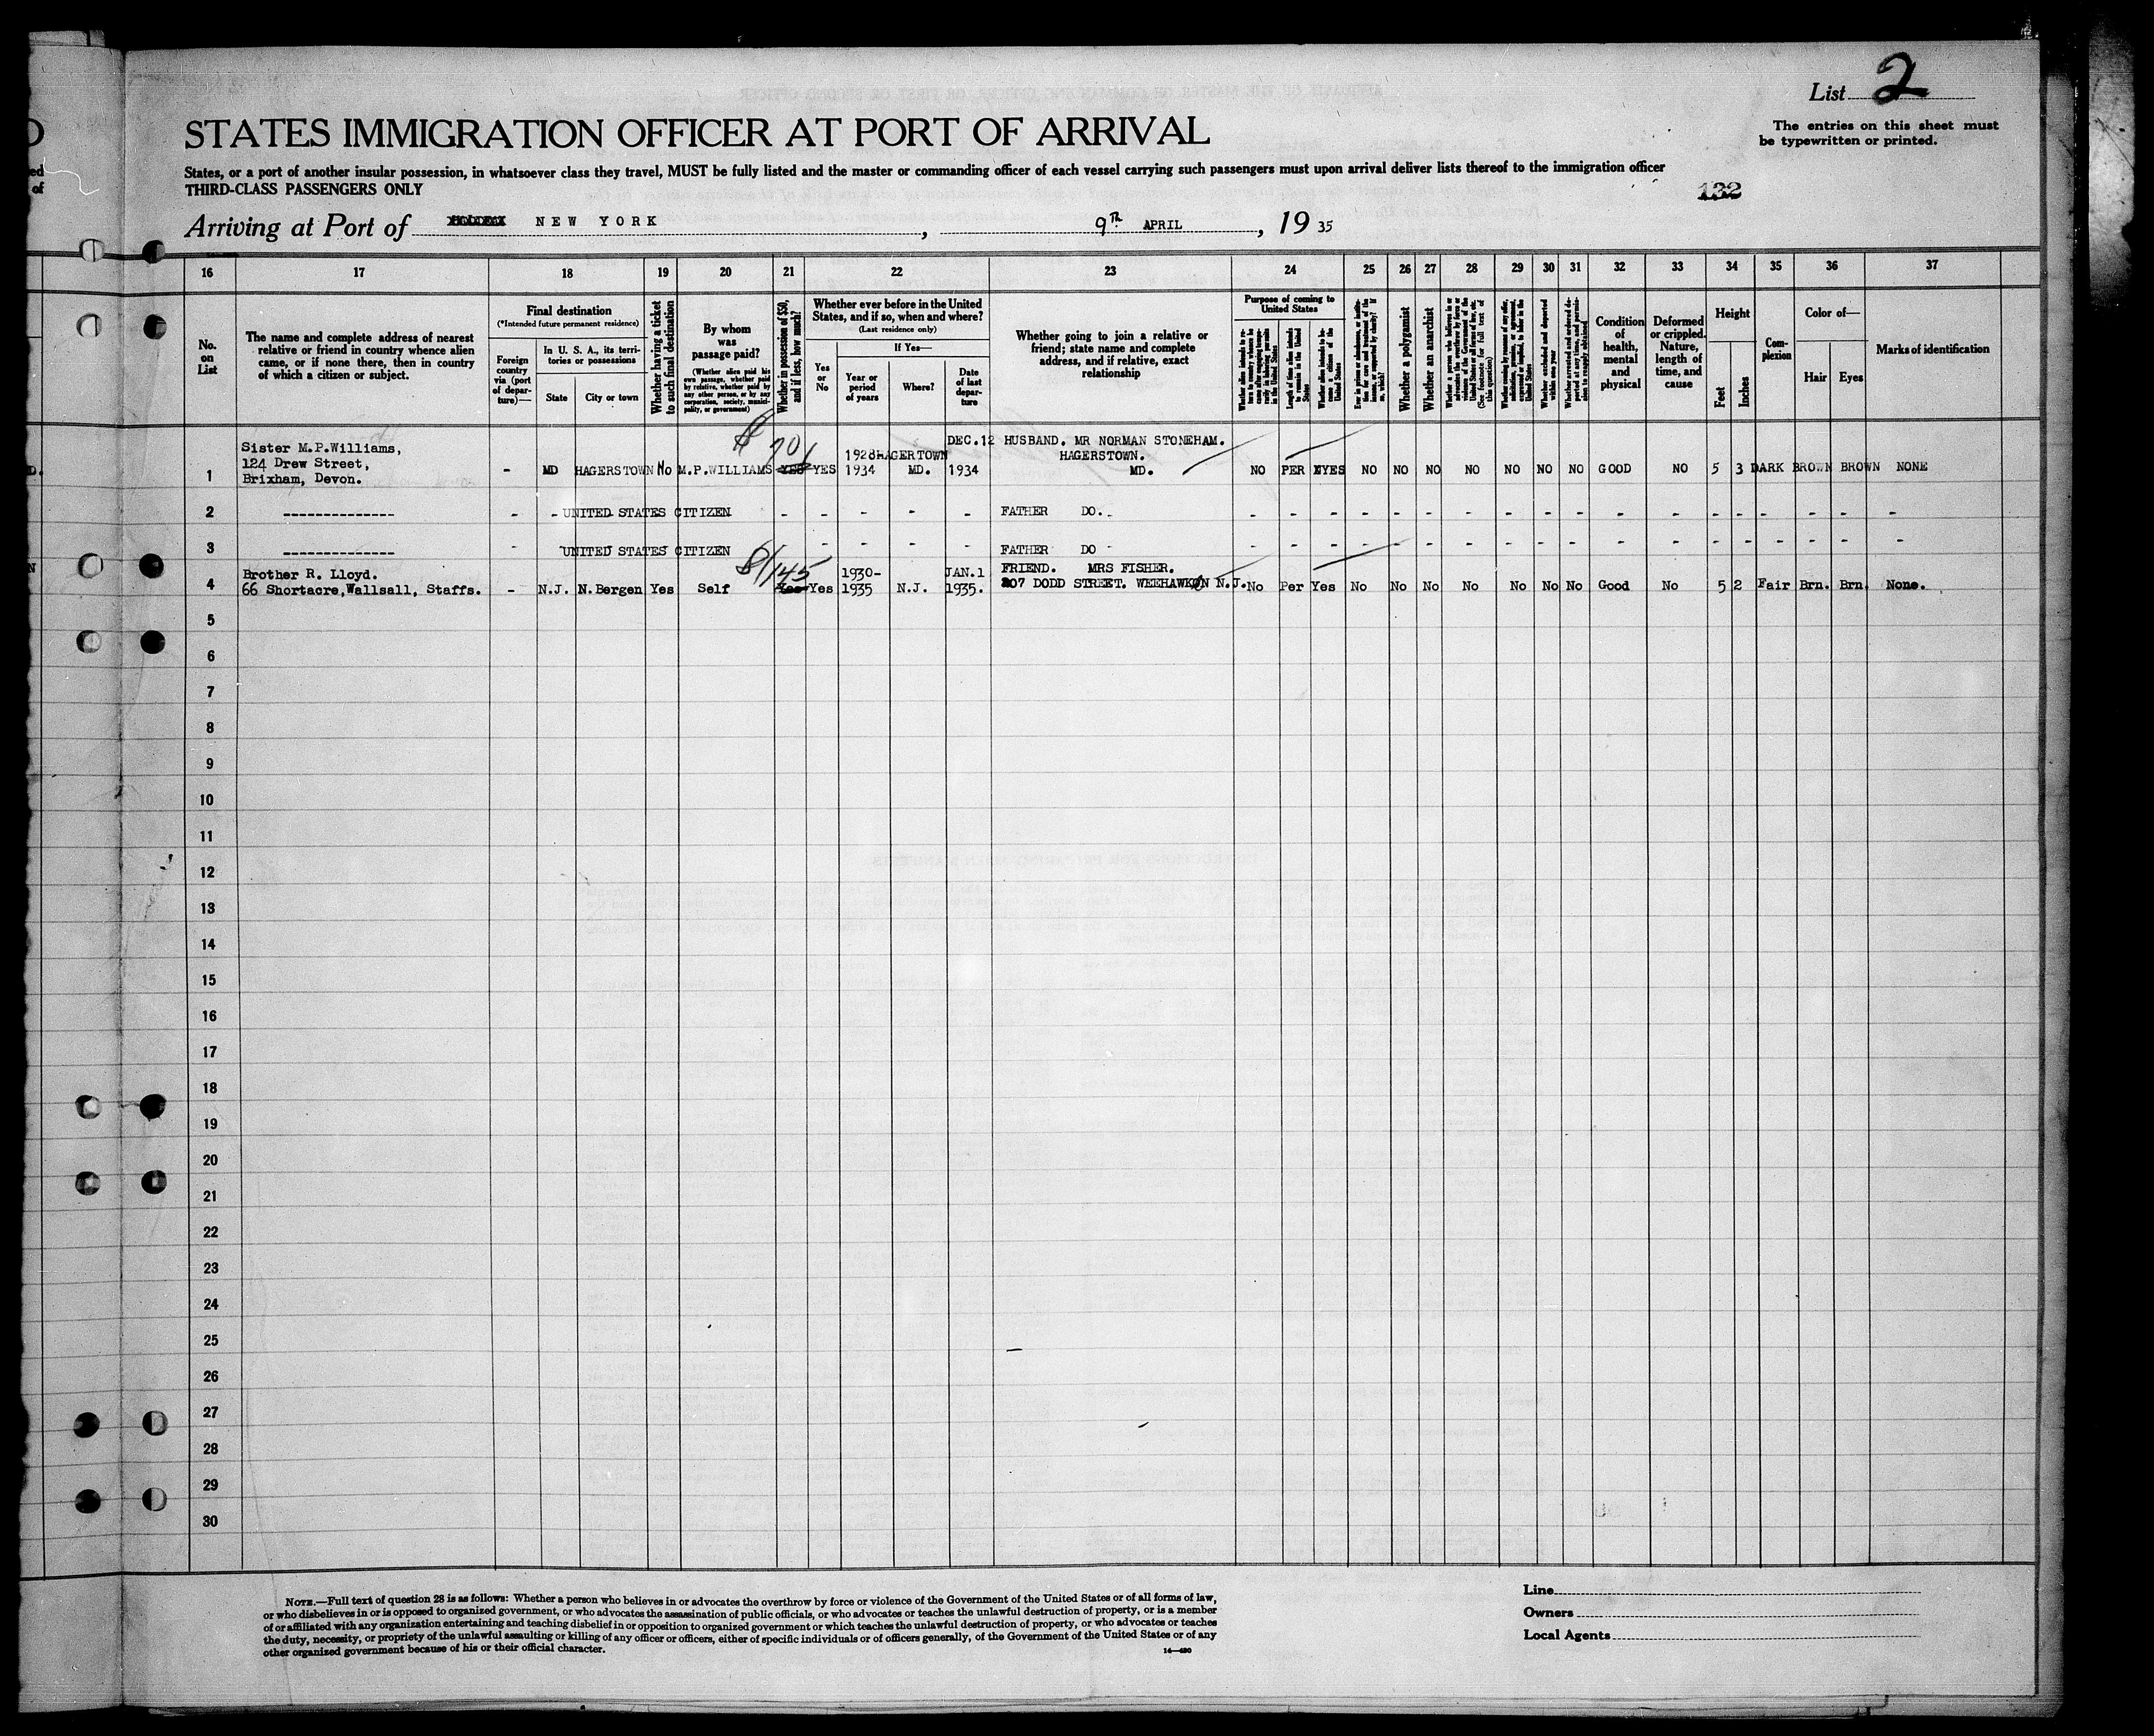 List 2
The entries on this sheet must
be typewritten or printed.
STATES IMMIGRATION OFFICER AT PORT OF ARRIVAL
States, or a port of another insular possession, in whatsoever class they travel, MUST be fully listed and the master or commanding officer of each vessel carrying such passengers must upon arrival deliver lists thereof to the immigration officer
THIRD-CLASS PASSENGERS ONLY
132
Arriving at Port of NEW YORK, 9th APRIL, 19 35
16 17 18 19 20 21 22 23 24 25 26 27 28 29 30 31 32 33 34 35 36 37
No. on List
The name and complete address of nearest
relative or friend in country whence alien
came, or if none there, then in country
of which a citizen or subject.
Final destination
(*Intended future permanent residence)
Foreign country via (port of departure)—
In U. S. A., its territories or possessions
State
City or town
Whether having a ticket to such final destination
By whom was passage paid?
(Whether alien paid his own passage, whether paid by relative, whether paid by any other person, or by any corporation, society, municipality, or government)
Whether in possession of $50, and if less, how much?
Whether ever before in the United
States, and if so, when and where?
(Last residence only)
If Yes—
Yes or No
Year or period of years
Where?
Date of last departure
Whether going to join a relative or
friend; state name and complete
address, and if relative, exact
relationship
Purpose of coming to United States
Whether a polygamist
Whether an anarchist
Condition of health, mental and physical
Deformed or crippled. Nature, length of time, and cause
Height
Feet
Inches
Complexion
Color of—
Hair
Eyes
Marks of identification
DEC.12 HUSBAND. MR NORMAN STONEHAM.
Sister M.P.Williams, $ 70/
124 Drew Street, 1928 HAGERTOWN HAGERSTOWN.
1 Brixham, Devon. - MD HAGERSTOWN No M.P.WILLIAMS YES YES 1934 MD. 1934 MD. NO PER YES NO NO NO NO NO NO NO GOOD NO 5 3 DARK BROWN BROWN NONE
2 -------------- - - UNITED STATES CITIZEN - - - - - FATHER DO. - - - - - - - - - - - - - - - - - -
3 -------------- - UNITED STATES CITIZEN - - - - FATHER DO - - - - - - - - - - - - - - - - - -
Brother R. Lloyd. $/145 1930- JAN.1 FRIEND. MRS FISHER.
4 66 Shortacre,Wallsall, Staffs. - N.J. N.Bergen Yes Self Yes Yes 1935 N.J. 1935. 207 DODD STREET. WEEHAWKEN N.J. No Per Yes No No No No No No No Good No 5 2 Fair Brn. Brn. None.
5
6
7
8
9
10
11
12
13
14
15
16
17
18
19
20
21
22
23
24
25
26
27
28
29
30
NOTE.—Full text of question 28 is as follows: Whether a person who believes in or advocates the overthrow by force or violence of the Government of the United States or of all forms of law,
or who disbelieves in or is opposed to organized government, or who advocates the assassination of public officials, or who advocates or teaches the unlawful destruction of property, or is a member
of or affiliated with any organization entertaining and teaching disbelief in or opposition to organized government or which teaches the unlawful destruction of property, or who advocates or teaches
the duty, necessity, or propriety of the unlawful assaulting or killing of any officer or officers, either of specific individuals or of officers generally, of the Government of the United States or of any
other organized government because of his or their official character.
14—430
Line
Owners
Local Agents